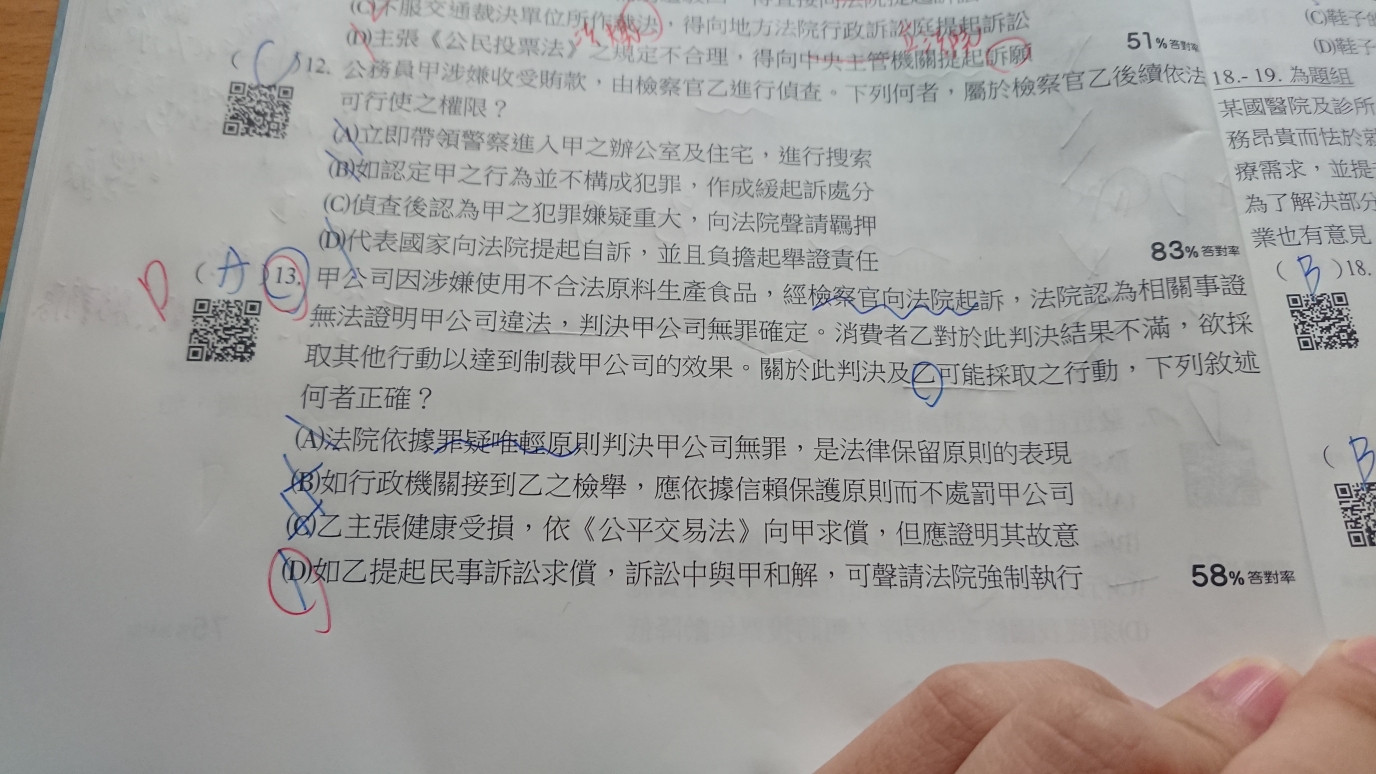 (C)不服交通裁決單位所作裁決，得向地方法院行政訴訟庭提起訴訟
(D)主張《公民投票法》之規定不合理，得向中央主管機關提起訴願
51%答對率
( C )12. 公務員甲涉嫌收受賄款，由檢察官乙進行偵查。下列何者，屬於檢察官乙後續依法
可行使之權限？
(A)立即帶領警察進入甲之辦公室及住宅，進行搜索
(B)如認定甲之行為並不構成犯罪，作成緩起訴處分
(C)偵查後認為甲之犯罪嫌疑重大，向法院聲請羈押
(D)代表國家向法院提起自訴，並且負擔起舉證責任
83%答對率
D ( A )13. 甲公司因涉嫌使用不合法原料生產食品，經檢察官向法院起訴，法院認為相關事證
無法證明甲公司違法，判決甲公司無罪確定。消費者乙對於此判決結果不滿，欲採
取其他行動以達到制裁甲公司的效果。關於此判決及乙可能採取之行動，下列敘述
何者正確？
(A)法院依據罪疑唯輕原則判決甲公司無罪，是法律保留原則的表現
(B)如行政機關接到乙之檢舉，應依據信賴保護原則而不處罰甲公司
(C)乙主張健康受損，依《公平交易法》向甲求償，但應證明其故意
(D)如乙提起民事訴訟求償，訴訟中與甲和解，可聲請法院強制執行
58%答對率
(C)鞋子
(D)鞋子
18.-19. 為題組
某國醫院及診所
務昂貴而怯於
療需求，並提
為了解決部分
業也有意見
( B )18.
( B